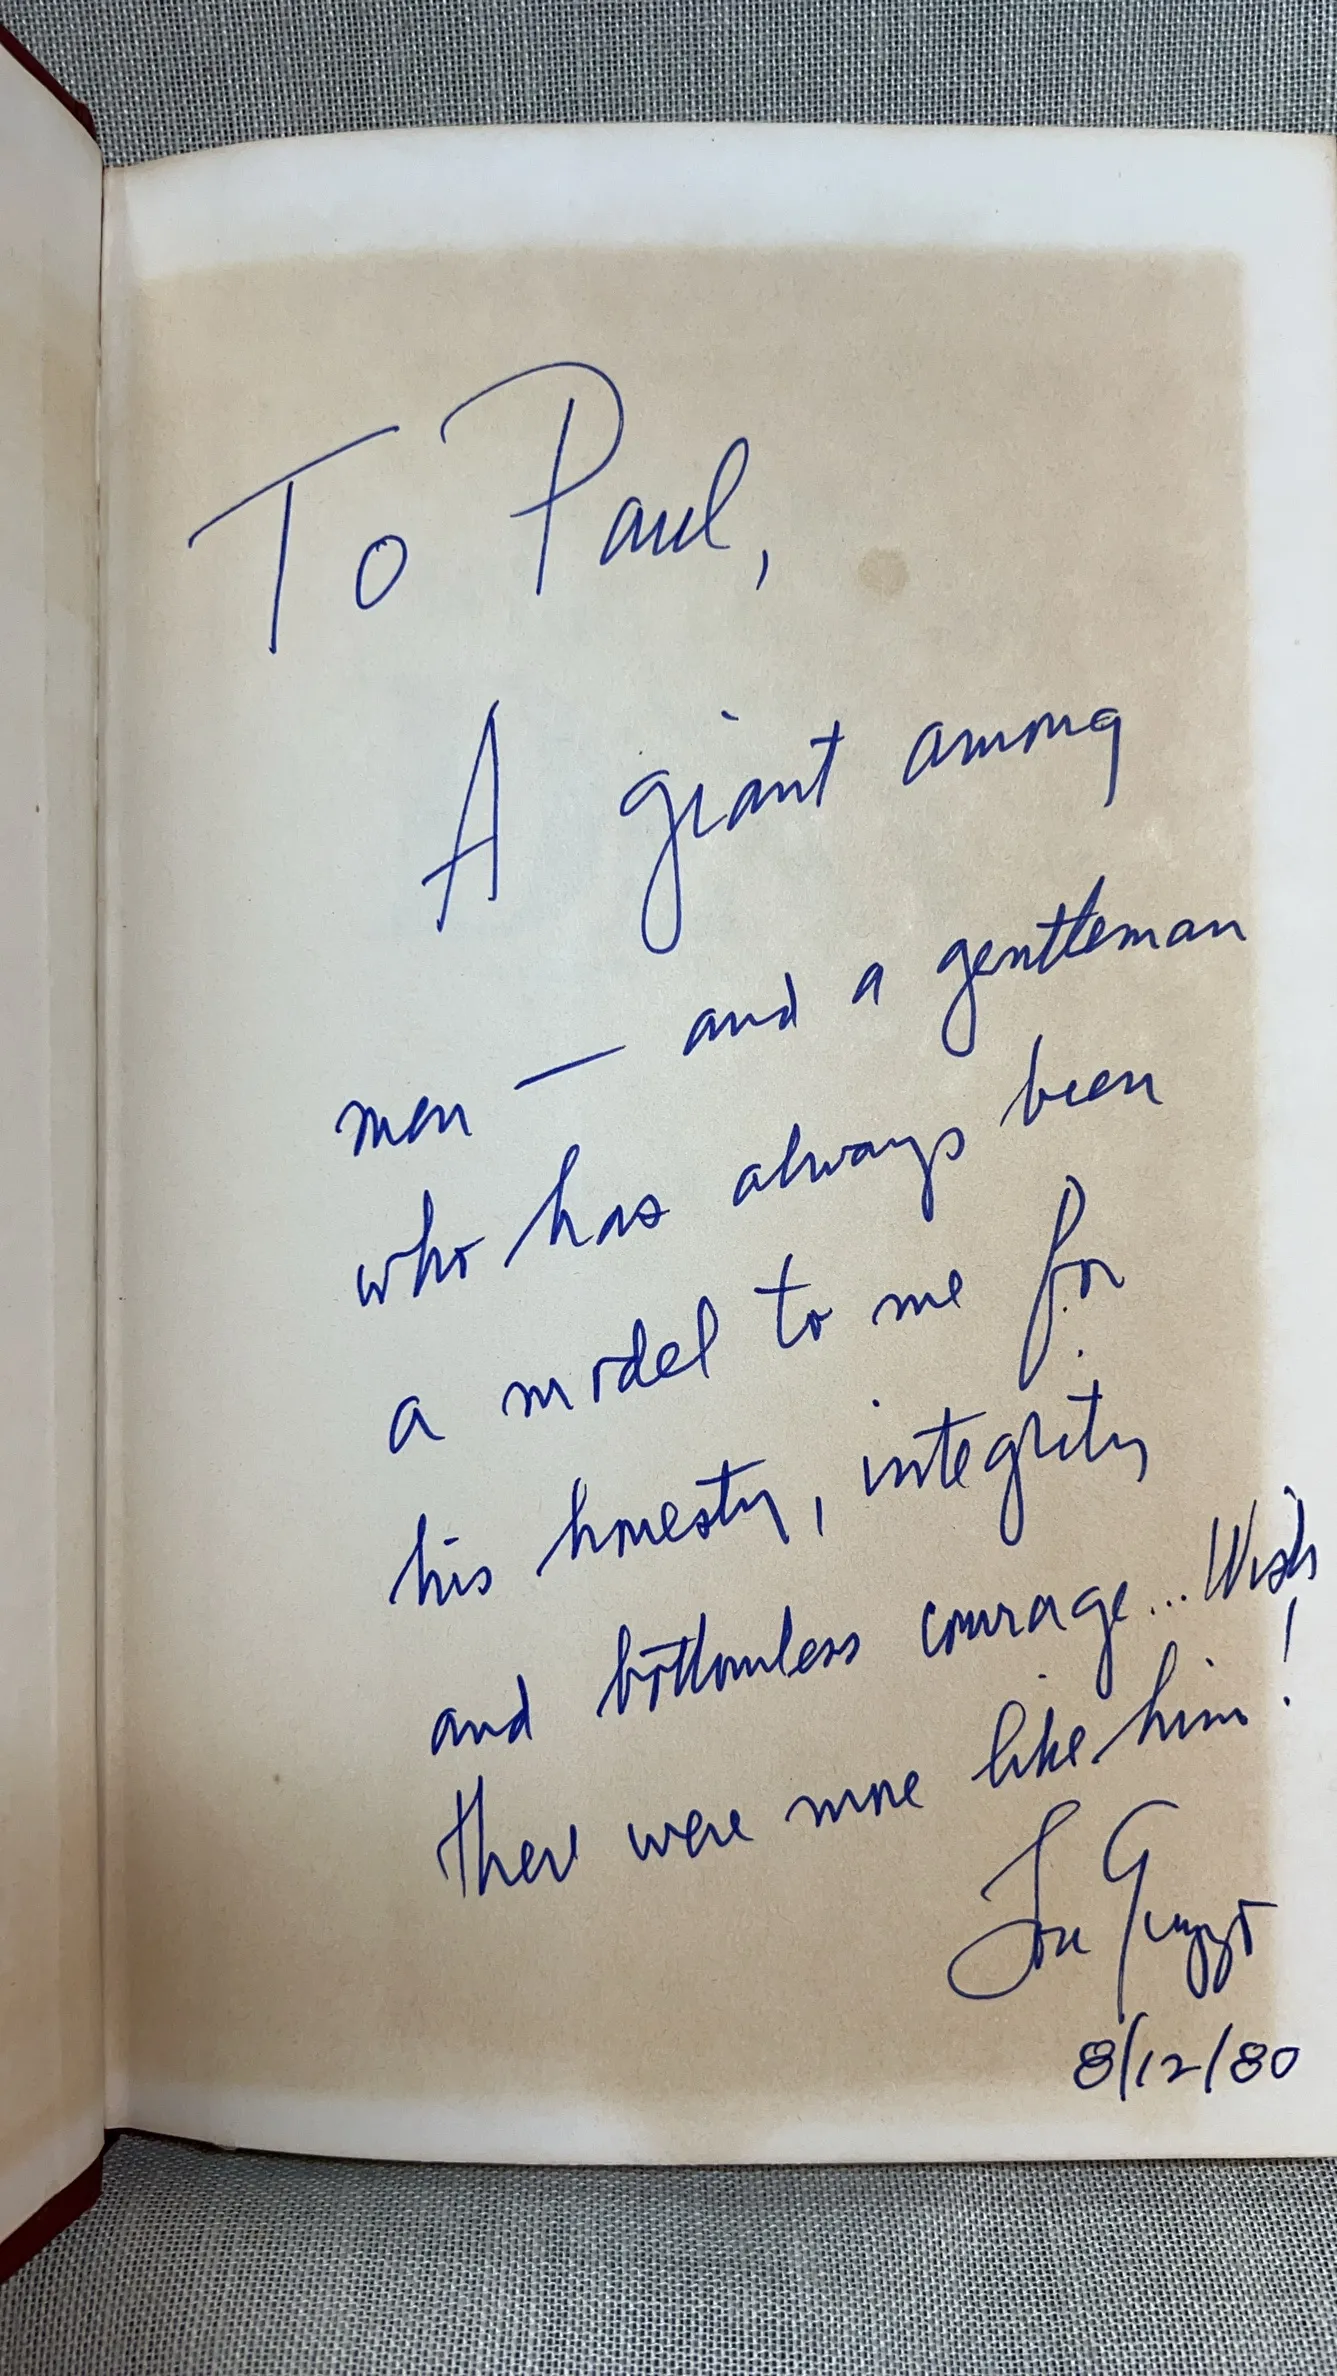 To Paul,
A giant among
men — and a gentleman
who has always been
a model to me for
his honesty, integrity
and bottomless courage... Wish
there were more like him!
8/12/80